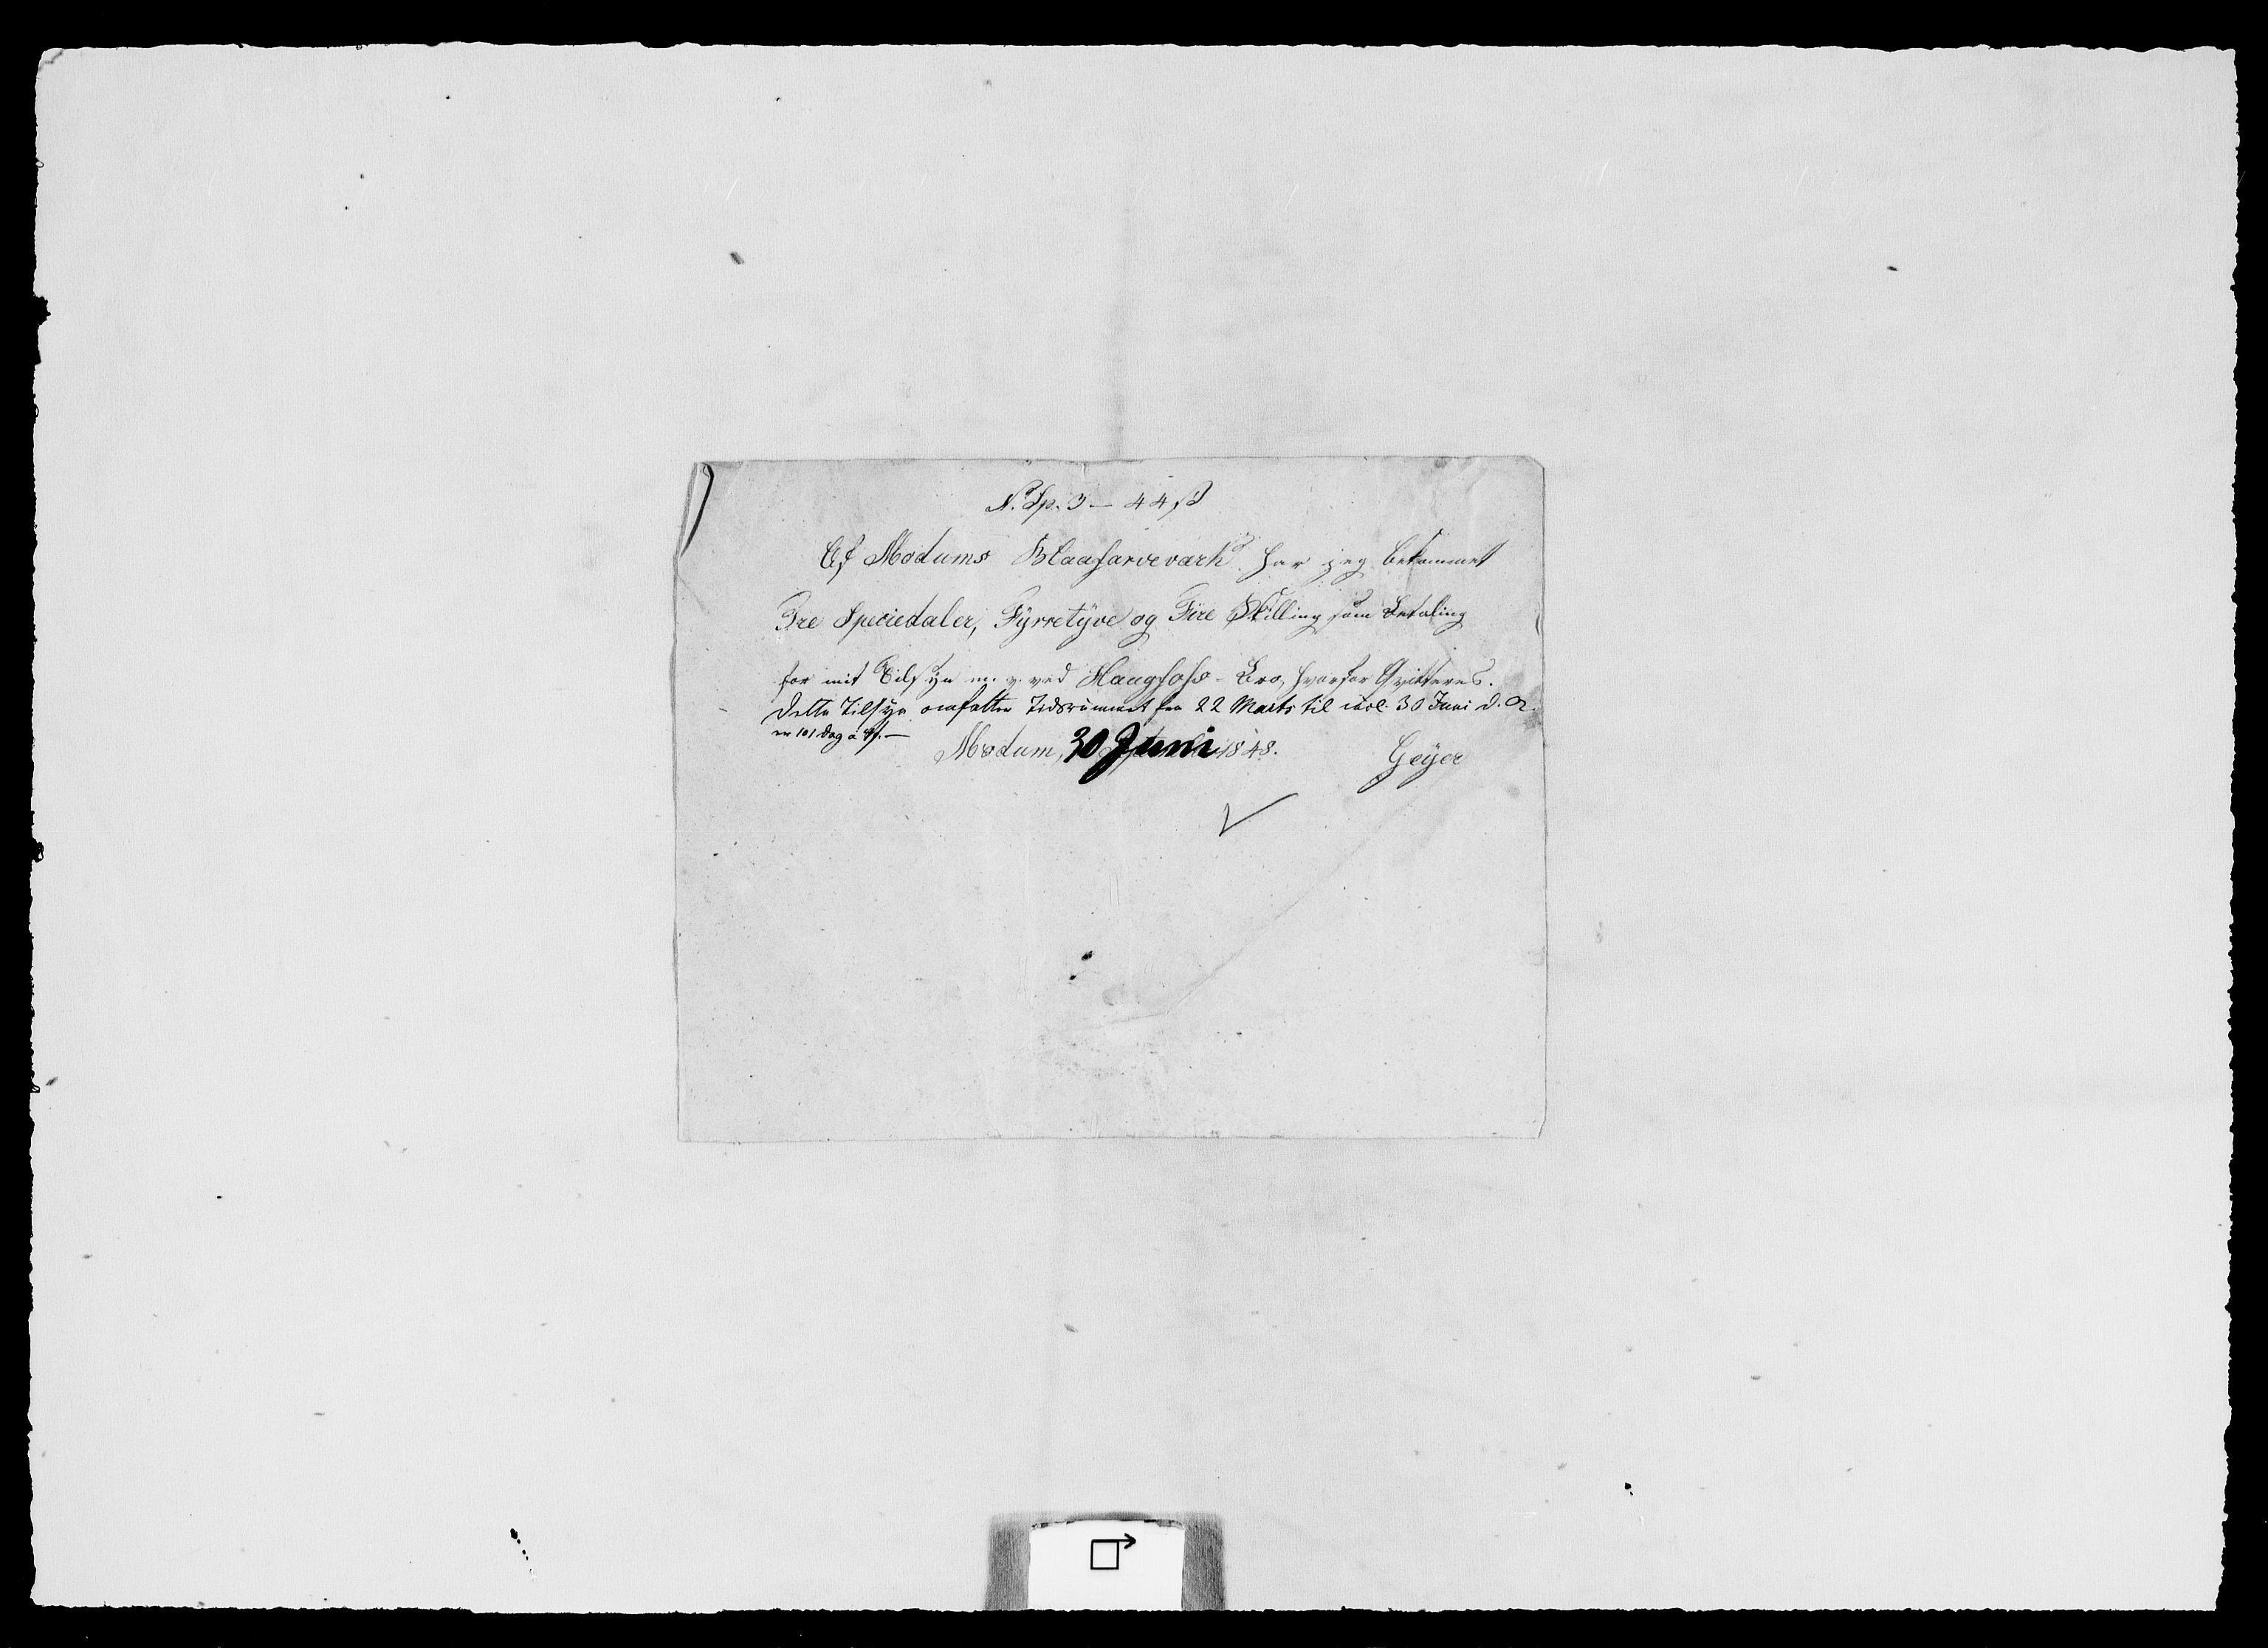 N. Sp. 3 – 44 ß
Af Modums Blaafarveværk har jeg bekommet
Tre Speciedaler, Fyrretyve og Fire Skilling som Betaling
for mit Tilsyn m. v. ved Haugfoss-Bro, hvorfor Qvitteres.
Dette Tilsyn omfatter Tidsrummet fra 22 Marts til incl. 30 Juni d. A.
er 101 Dag a 4ß.–
Modum, 30 Juni 1848. Geÿer